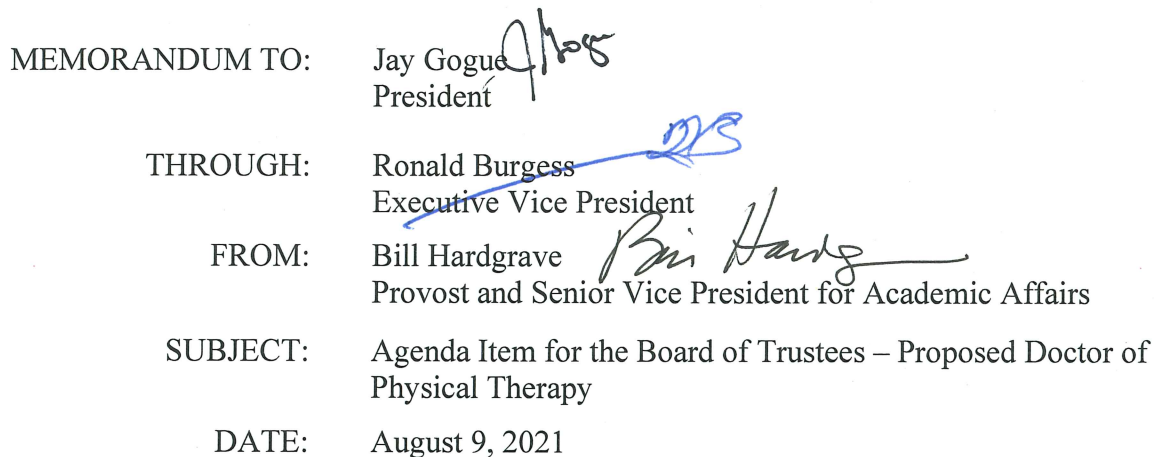 MEMORANDUM TO: Jay Gogue
President
THROUGH: Ronald Burgess
Executive Vice President
FROM: Bill Hardgrave Bill Hardg
Provost and Senior Vice President for Academic Affairs
SUBJECT: Agenda Item for the Board of Trustees – Proposed Doctor of
Physical Therapy
DATE: August 9, 2021